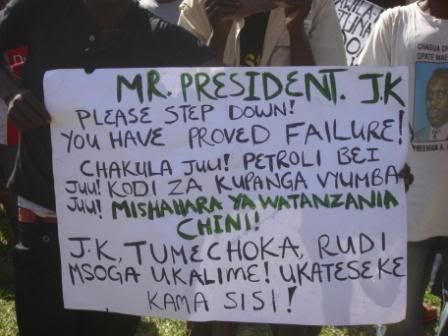 MR. PRESIDENT. J.K
PLEASE STEP DOWN!
YOU HAVE PROVED FAILURE!
CHAKULA JUU! PETROLI BEI
JUU! KODI ZA KUPANGA VYUMBA
JUU! MISHAHARA YA WATANZANIA
CHINI!
J.K, TUMECHOKA, RUDI
MSOGA UKALIME! UKATESEKE
KAMA SISI!
CHAGUA
UPATE MAE
FREEMAN A.